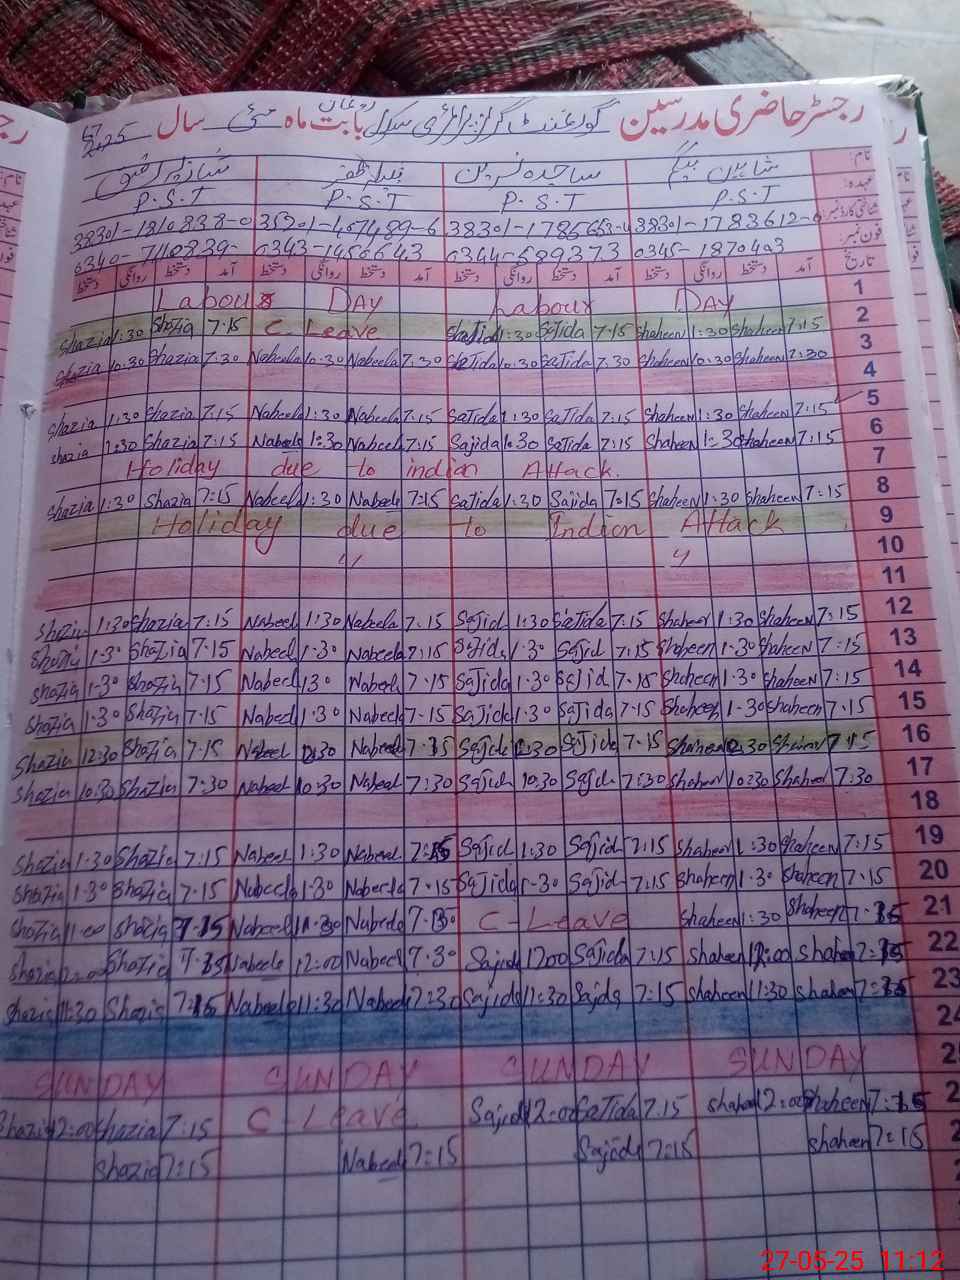 رجسٹر حاضری مدرسین گورنمنٹ گرلز پرائمری سکول بابت ماہ مئی سال 2025
نام: شاہین بیگم ساجدہ نسرین نبیلہ ظفر شازیہ
عہدہ: P.S.T P.S.T P.S.T P.S.T
شناختی کارڈ نمبر
فون نمبر:
تاریخ آمد دستخط روانگی دستخط آمد دستخط روانگی دستخط آمد دستخط روانگی دستخط آمد دستخط روانگی دستخط
Labour DAY Labour DAY 1
Shazia 1:30 Shazia 7.15 C. Leave Sajida 1:30 Sajida 7.15 Shaheen 1:30 Shaheen 7:15 2
Shazia 10:30 Shazia 7.30 Nabeela 10:30 Nabeela 7.30 SaJida 10:30 SaJida 7.30 Shaheen 10:30 Shaheen 7:30 3
4
Shazia 1:30 Shazia 7.15 Nabeela 1:30 Nabeela 7.15 SaJida 1:30 SaJida 7.15 Shaheen 1:30 Shaheen 7:15 5
Shazia 1:30 Shazia 7.15 Nabeela 1:30 Nabeela 7.15 Sajida 1:30 SaJida 7.15 Shaheen 1:30 Shaheen 7:15 6
Holiday due to indian Attack. 7
Shazia 1:30 Shazia 7:15 Nabeela 1:30 Nabeela 7:15 SaJida 1:30 Sajida 7:15 Shaheen 1:30 Shaheen 7:15 8
Holiday due to Indian Attack 9
〃 〃 10
11
Shazia 1:30 Shazia 7:15 Nabeel 1:30 Nabeela 7.15 Sajid 1:30 SaJida 7.15 Shaheen 1:30 Shaheen 7:15 12
Shazia 1.30 Shazia 7.15 Nabeel 1.30 Nabeela 7:15 Sajida 1.30 Sajid 7.15 Shaheen 1.30 Shaheen 7:15 13
Shazia 1.30 Shazia 7.15 Nabeel 130 Nabeela 7.15 SaJida 1.30 SaJid 7.15 Shaheen 1.30 Shaheen 7:15 14
Shazia 1.30 Shazia 7.15 Nabeel 1.30 Nabeela 7.15 SaJida 1.30 SaJida 7.15 Shaheen 1.30 Shaheen 7:15 15
Shazia 12:30 Shazia 7.15 Nabeel 12:30 Nabeel 7.15 SaJida 12:30 SaJida 7.15 Shaheen 12:30 Shaheen 7:15 16
Shazia 10:30 Shazia 7:30 Nabeel 10:30 Nabeel 7:30 Sajida 10:30 Sajida 7:30 Shaheen 10:30 Shaheen 7:30 17
18
Shazia 1:30 Shazia 7:15 Nabeel 1:30 Nabeel 7:15 Sajid 1:30 Sajid 7:15 Shaheen 1:30 Shaheen 7:15 19
Shazia 1.30 Shazia 7.15 Nabeela 1.30 Nabeela 7.15 SaJida 1.30 Sajid 7:15 Shaheen 1.30 Shaheen 7.15 20
Shazia 11:00 Shazia 7.15 Nabeela Nabeela C-Leave Shaheen 1:30 Shaheen 7:15 21
Shazia 12:00 Shazia 7:15 Nabeela 12:00 Nabeel 7.30 Sajida 1200 Sajida 7:15 Shaheen 12:00 Shaheen 7:15 22
Shazia 11:30 Shazia 7:15 Nabeela 11:30 Nabeela 7:30 Sajida 11:30 Sajida 7:15 Shaheen 11:30 Shaheen 7:15 23
24
SUNDAY SUNDAY SUNDAY SUNDAY
Shazia 12:00 Shazia 7:15 C-Leave Sajida 12:00 SaJida 7.15 Shaheen 12:00 Shaheen 7:15
Shazia 7:15 Nabeela 7:15 Sajida 7:15 Shaheen 7:15
27-05-25 11:12